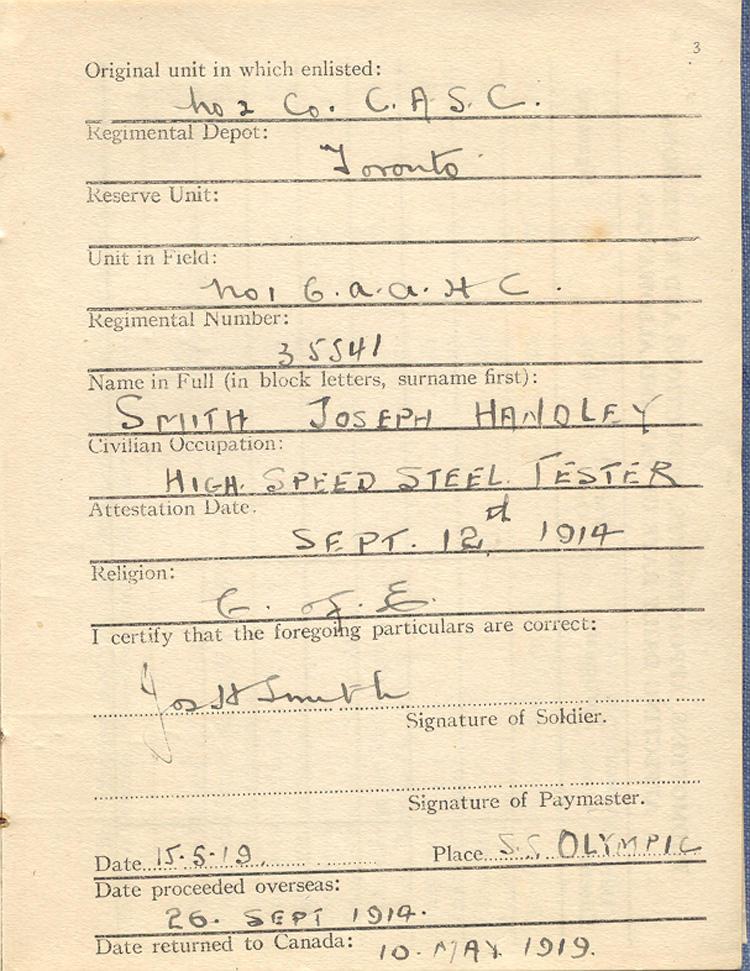 3
Original unit in which enlisted:
No 2 Co. C.A.S.C.
Regimental Depot:
Toronto
Reserve Unit:
Unit in Field:
No 1 C.a.a.H C.
Regimental Number:
35541
Name in Full (in block letters, surname first):
SMITH JOSEPH HANDLEY
Civilian Occupation:
HIGH. SPEED STEEL. TESTER
Attestation Date.
SEPT. 12d 1914
Religion:
C. of E.
I certify that the foregoing particulars are correct:
Jos H Smith
Signature of Soldier.
Signature of Paymaster.
Date 15.5.19. Place S.S. OLYMPIC
Date proceeded overseas:
26. SEPT 1914.
Date returned to Canada: 10. MAY. 1919.